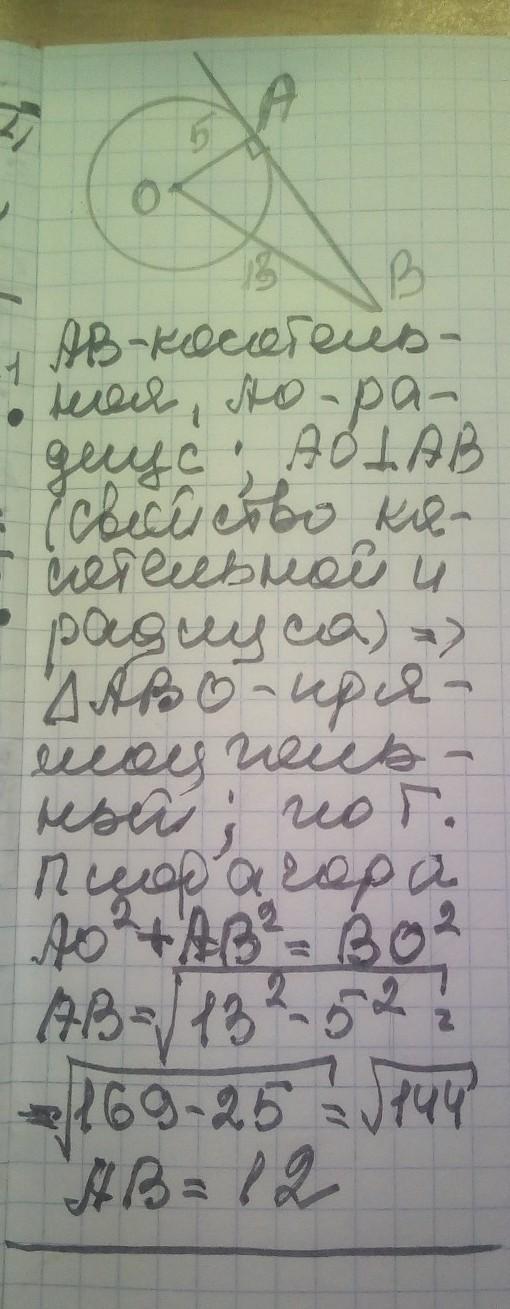 A
5
O
13
B
АВ-касатель-
ная, АО-ра-
диус; АО⊥АВ
(свойство ка-
сательной и
радиуса) =>
△АВО-пря-
моуголь-
ный; по т.
Пифагора
АО²+АВ²=ВО²
АВ=√13²-5²=
=√169-25=√144
АВ=12